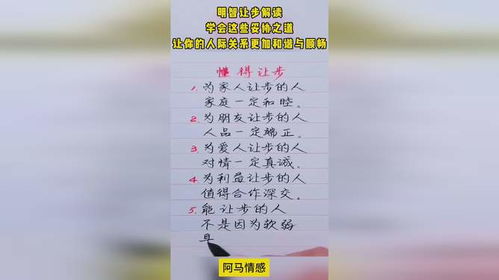 明智让步解读
学会这些妥协之道
让你的人际关系更加和谐与顺畅
懂得让步
1. 为家人让步的人
家庭一定和睦。
2. 为朋友让步的人
人品一定端正。
3. 为爱人让步的人
对情一定真诚。
4. 为利益让步的人
值得合作深交。
5. 能让步的人
不是因为软弱
阿马情感